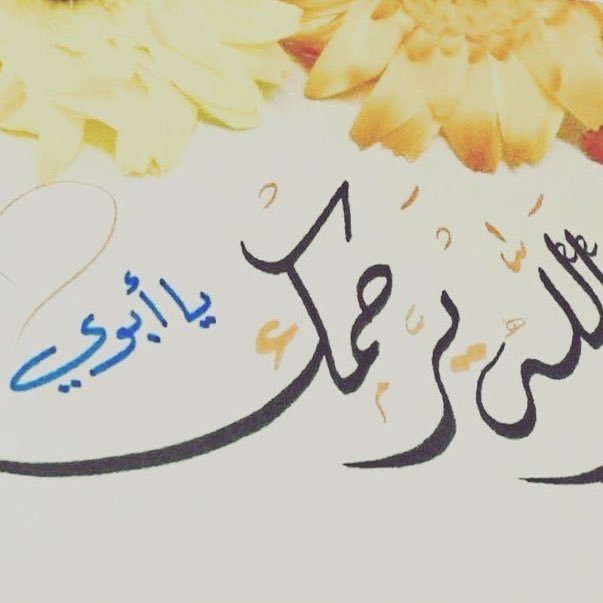 الله يرحمك
يا أبوي